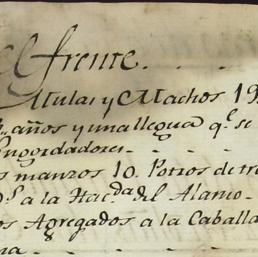 el frente
Mulas y Machos 19
años y una llegua q.e se
Engordadores
manzos 10. Potros de tre
a la Hac.da del Alamo
os Agregados a la Caballa
na